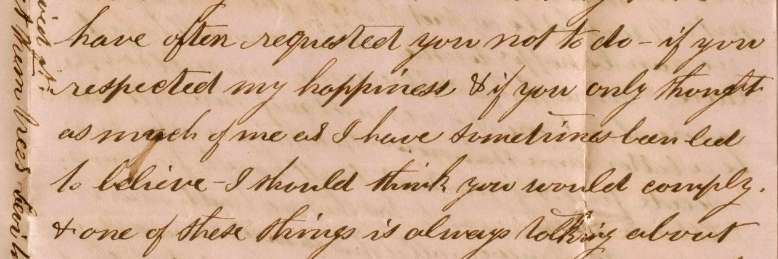 have often requested you not to do – if you
respected my happiness & if you only thought
as much of me as I have sometimes been led
to believe – I should think you would comply.
& one of these things is always talking about